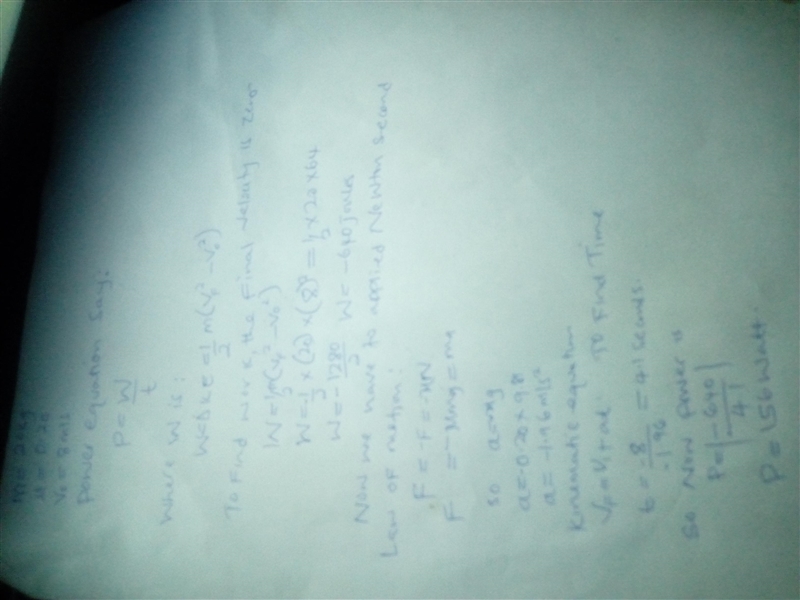 m = 20kg
μ = 0.20
V₀ = 8 m/s
Power equation say:
P = W/t
Where W is:
W=ΔKE = 1/2 m(V_f² - V₀²)
To Find work, the Final velocity is zero
W = 1/2 m(V_f² - V₀²)
W = -1/2 × (20) × (8)² = 1/2 × 20 × 64
W = -1280/2 W = -640 Joules
Now we have to applied Newton second
Law of motion:
F = -F = -μN
F = -μmg = ma
so a = -μg
a = -0.20 × 9.8
a = -1.96 m/s²
Kinematic equation
V_f = V_i + at To Find Time
t = -8/-1.96 = 4.1 seconds.
So Now Power is
P = |-640/4.1|
P = 156 Watt.